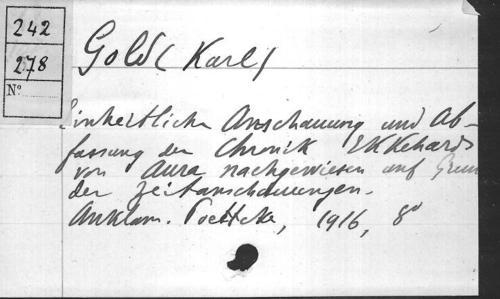 242
278
N°
Gold (Karl)
Einheitliche Anschauung und Ab-
fassung der Chronik Ekkehards
von Aura nachgewiesen auf Grun
der Zeitanschauungen.
Anklam. Poettcke, 1916, 8°